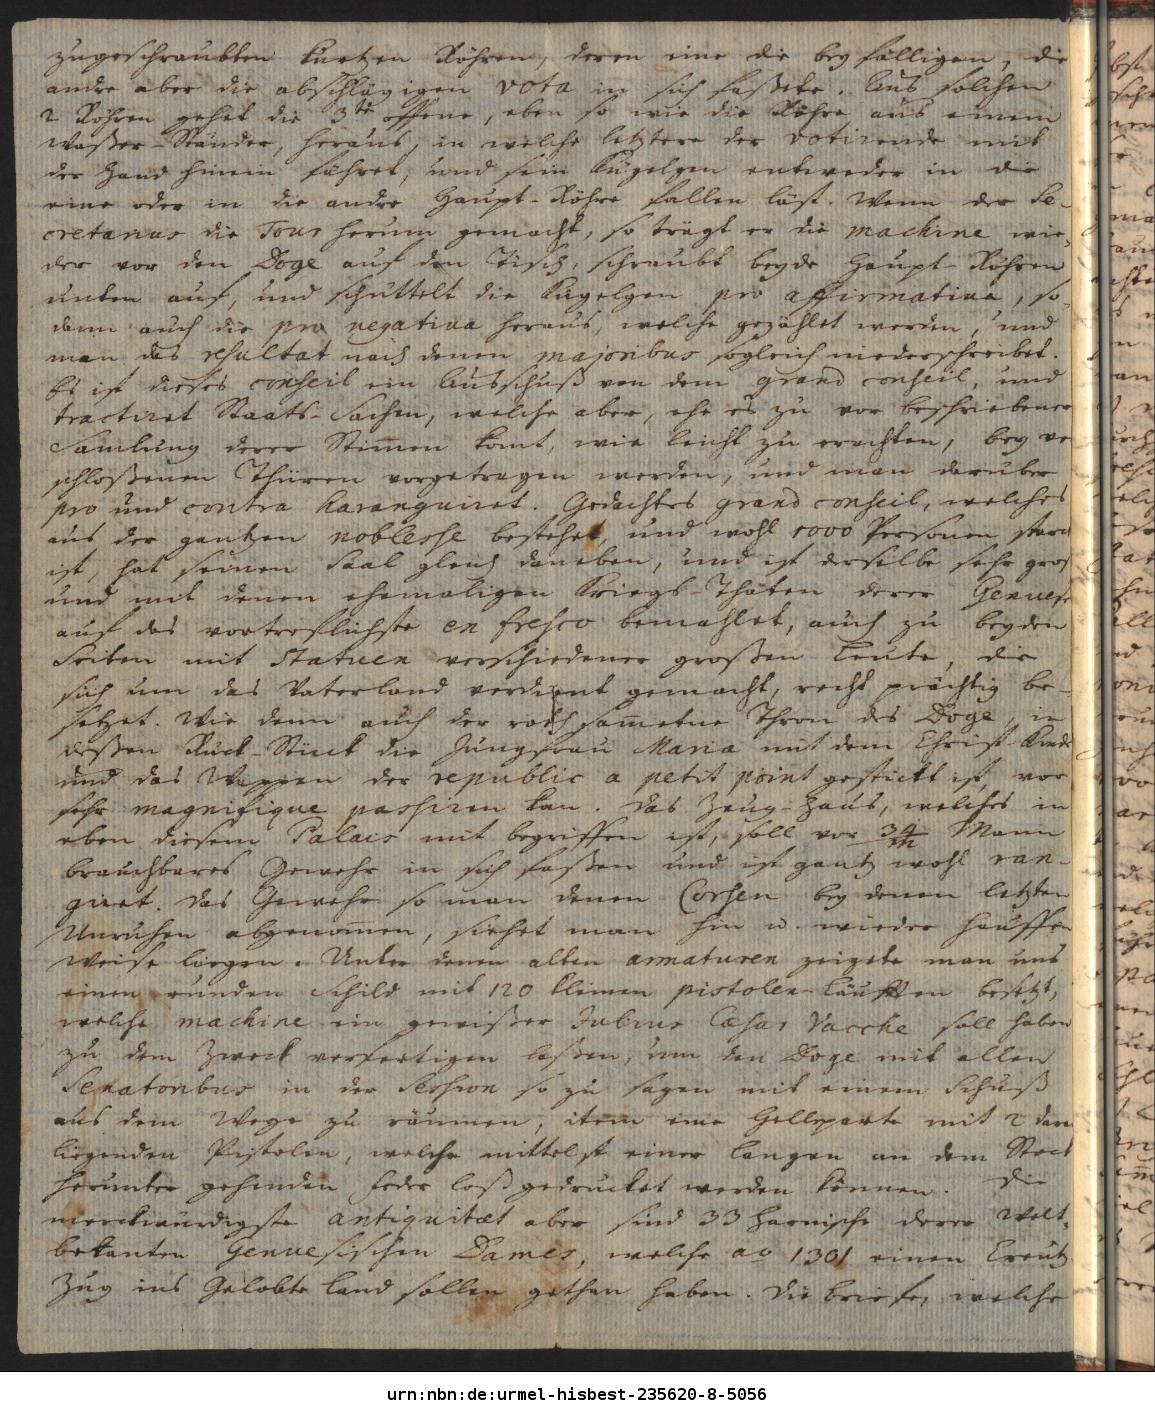 zugeschraubten kurtzen Röhren, deren eine die beyfälligen, die
andre aber die abschlägigen vota in sich faßete. Aus solchen
2 Röhren gehet die 3te offene, eben so wie die Röhre aus einem
Waßer-Ständer, heraus, in welche letztere der votirende mit
der Hand hinein fähret, und sein Kügelgen entweder in die
eine oder in die andre Haupt-Röhre fallen läst. Wenn der Se-
cretarius die Tour herum gemacht, so trägt er die machine wie-
der vor den Doge auf den Tisch, schraubt beyde Haupt-Röhren
unten auf, und schüttelt die Kügelgen pro affirmativa, so-
dann auch die pro negativa heraus, welche gezählet werden, und
man das resultat nach denen majoribus sogleich niederschreibet.
Es ist dieses conseil ein Ausschuß von dem grand conseil, und
tractiret Staats-Sachen, welche aber, ehe es zu vor beschriebener
Samlung derer Stimen komt, wie leicht zu erachten, bey ver
schloßenen Thüren vorgetragen werden, und man darüber
pro und contra haranguiret. Gedachtes grand conseil, welches
aus der gantzen noblesse bestehet, und wohl 1000 Personen starck
ist, hat seinen Saal gleich daneben, und ist derselbe sehr groß
und mit denen ehemaligen Kriegs-Thaten derer Genueser
auf das vortreflichste en fresco bemahlet, auch zu beyden
Seiten mit Statuen verschiedener großen Leute, die
sich um das Vaterland verdient gemacht, recht prächtig be-
setzet. Wie denn auch der roth sametne Thron des Doge, in
deßen Ruck-Stück die Jungfrau Maria mit dem Christ-Kinde
und das Wappen der republic a petit point gestickt ist, vor
sehr magnifique passiren kan. Das Zeug-Haus, welches in
eben diesem Palais mit begriffen ist, soll vor 34/m Mann
brauchbares Gewehr in sich faßen und ist gantz wohl ran-
giret. Das Gewehr so man denen Corsen bey denen letzten
Unruhen abgenommen, siehet man hin u. wieder hauffen
weise liegen. Unter denen alten armaturen zeigete man uns
einen runden Schild mit 120 kleinen pistolen-Läufften besetzt,
welche machine ein gewißer Julius Cæsar Vacche soll haben
zu dem Zweck verfertigen laßen, um den Doge mit allen
Senatoribus in der Session so zu sagen mit einem Schuß
aus dem Wege zu räumen, item eine Helleparte mit 2 daran
liegenden Pistolen, welche mittelst einer langen an dem Stock
herunter gehenden Feder loß gedrucket werden können. Die
merckwürdigste antiquitæt aber sind 33 Harnische derer Welt-
bekanten Genuesischen Dames, welche ao 1301 einen Creutz
Zug ins Gelobte Land sollen gethan haben. Die Briefe, welche
urn:nbn:de:urmel-hisbest-235620-8-5056